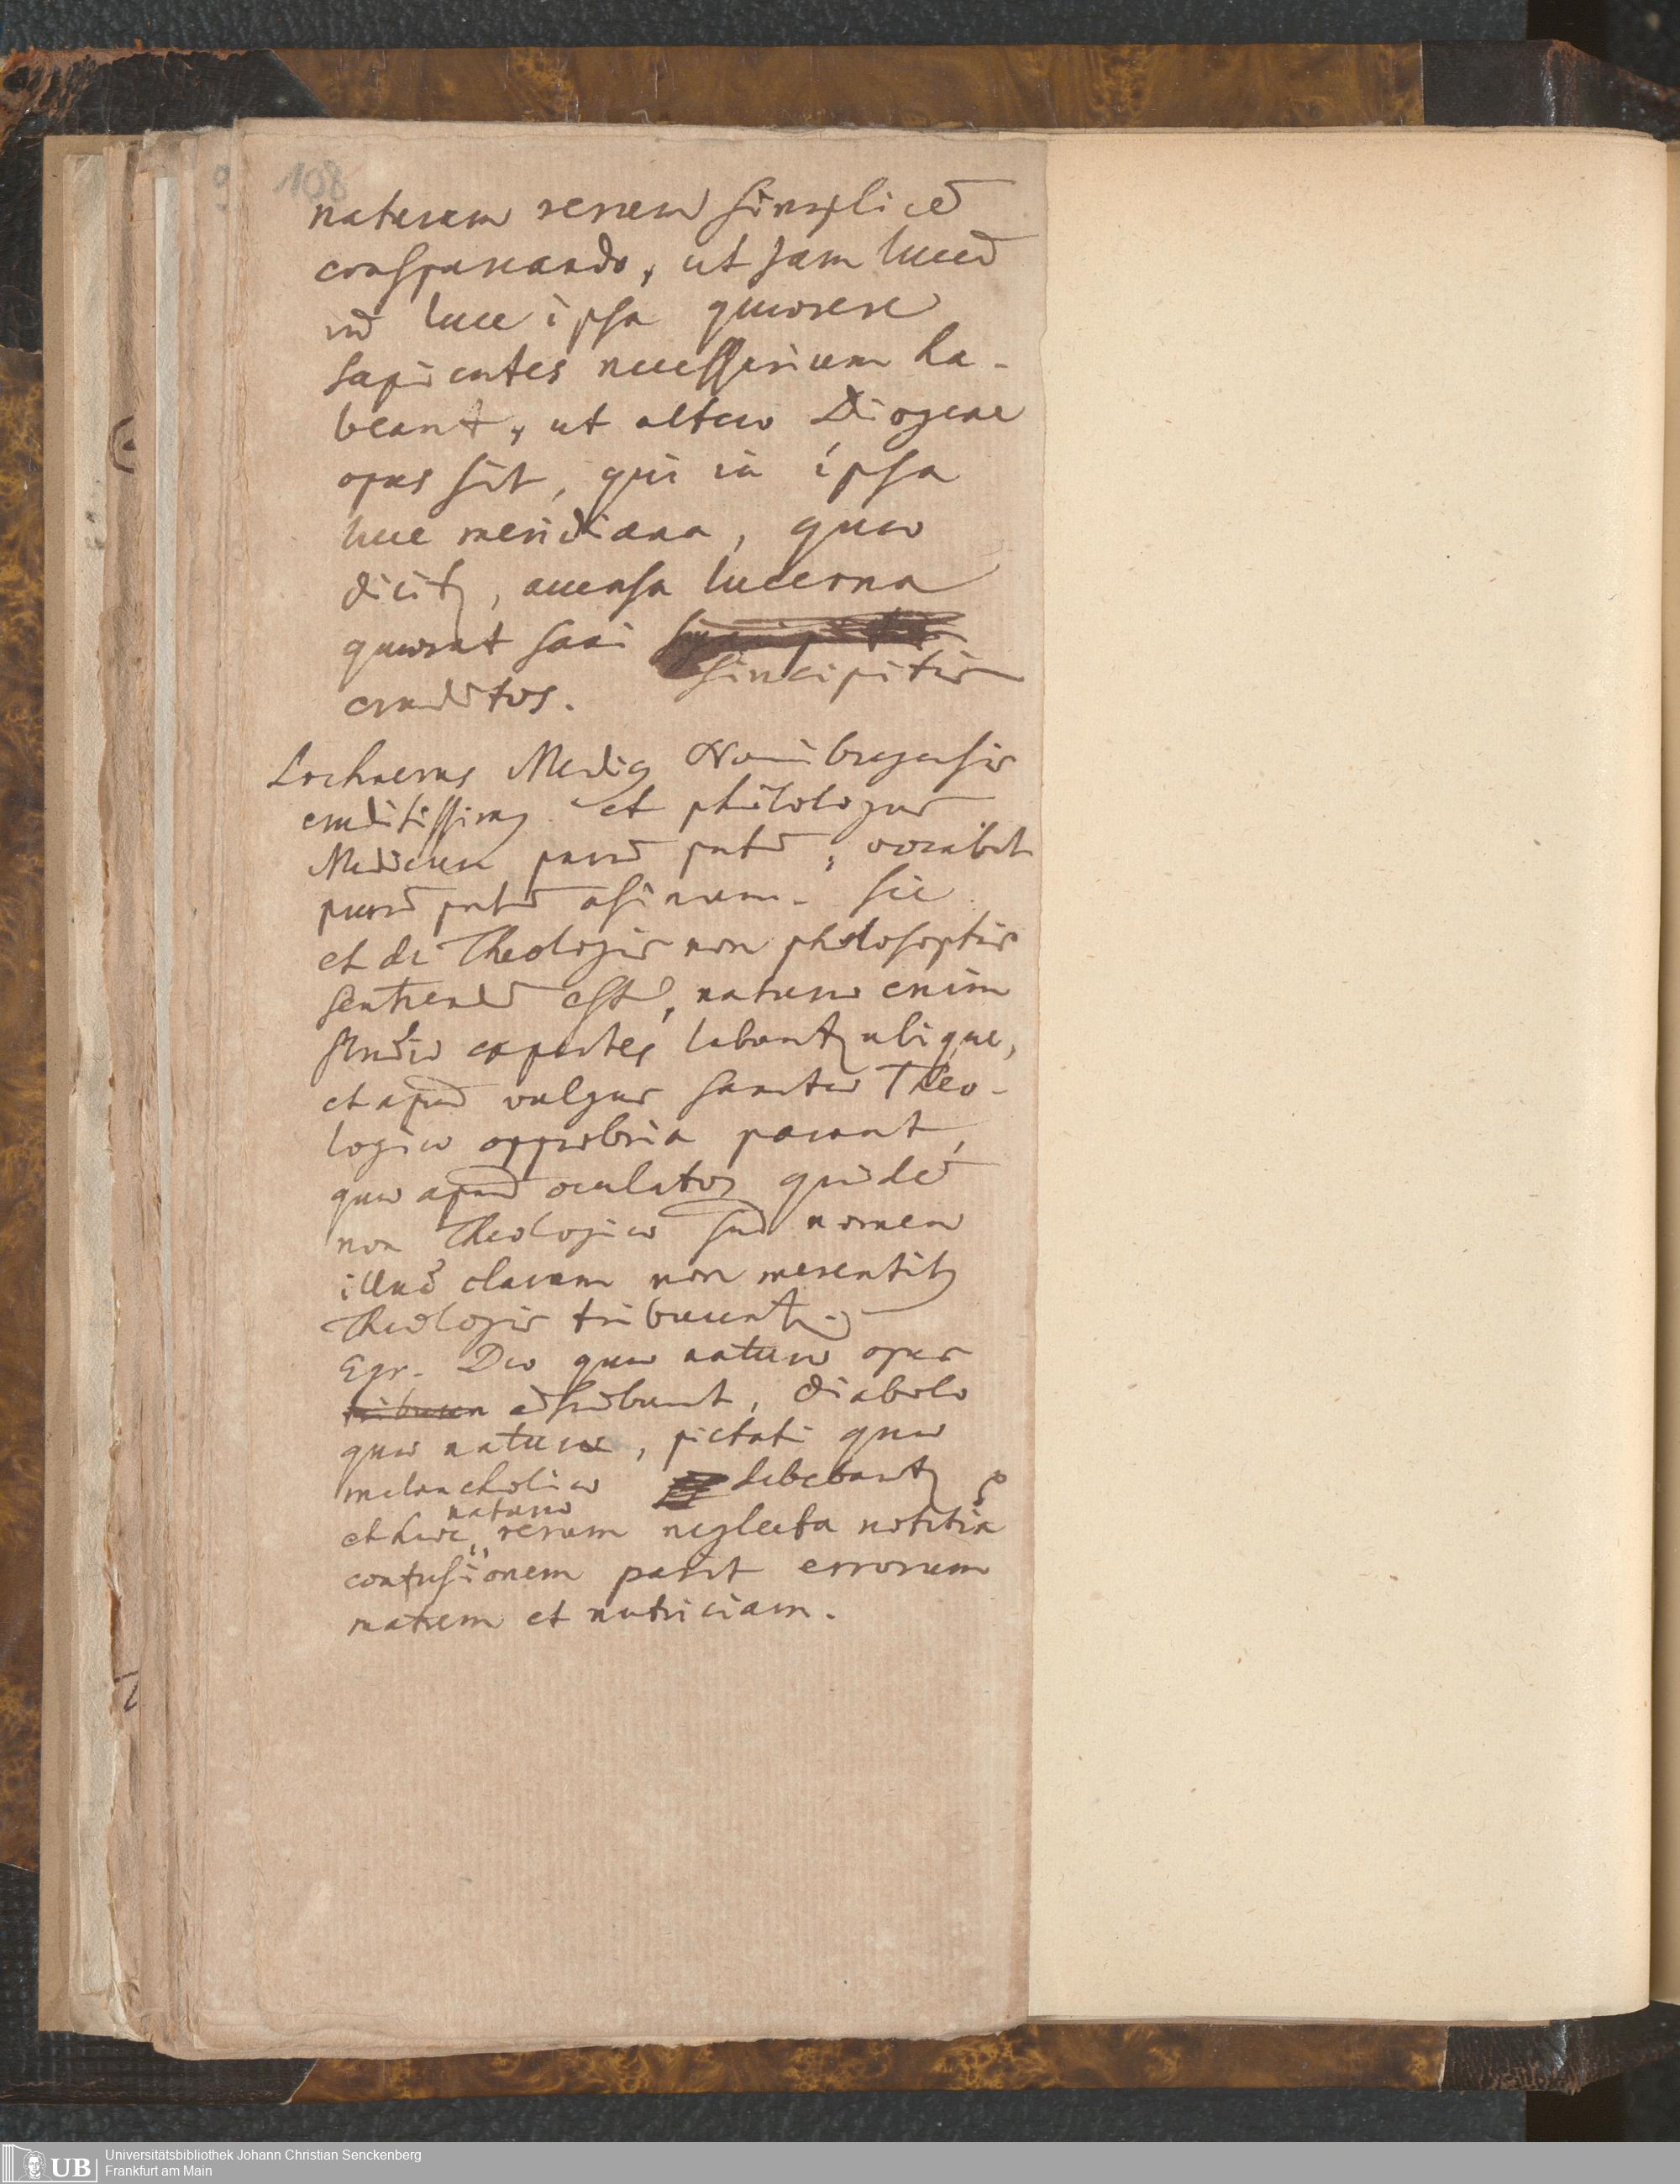 108
naturam rerum simplicē
conspurcando, ut jam lucē
in luce ipsa quaerere
sapientes necessarium ha-
beant, ut altero Diogene
opus sit, qui in ipsa
luce meridiana, quae
dicitr, accensa lucerna
quaerat sani
sincipitis
eruditos.
Lochnerus Medicus Norinbergensis
eruditissimus et philologus
Medicum purū putū, vocabit
purū putū asinum. sic
et de Theologis non philosophis
sentiendū est, naturae enim
studio expertes labuntr ubique,
et apud vulgus sanctae Theo-
logiae opprobria parant,
quae apud oculatos quidē
non Theologiae sed nomen
illud clarum non merentibus
Theologis tribuuntr.
Egr. Deo quae naturae opus
tribuun adscribunt, diabolo
quae naturae, pietati quae
melancholiae debebantr
et haec naturae rerum neglecta notitia
confusionem parit errorum
matrem et nutriciam.
UB Universitätsbibliothek Johann Christian Senckenberg
Frankfurt am Main